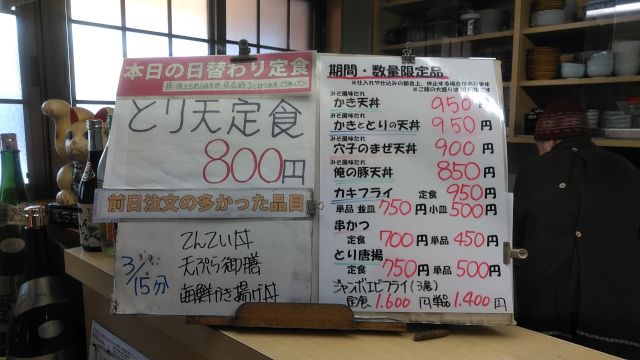 本日の日替わり定食
とり天定食
800円
前日注文の多かった品目
3/15分
てんてい丼
天ぷら御膳
海鮮かき揚げ丼
期間・数量限定品
※仕入れや仕込みの都合上、休止する場合があります
みそ風味だれ
かき天丼 950円
みそ風味だれ
かきととりの天丼 950円
みそ風味だれ
穴子のまぜ天丼 900円
みそ風味だれ
俺の豚天丼 850円
カキフライ 定食 950円
単品 並皿 750円 小皿 500円
串かつ
定食 700円 単品 450円
とり唐揚
定食 750円 単品 500円
ジャンボエビフライ(3尾)
定食 1.600円 単品 1.400円